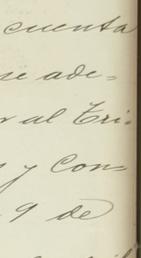 cuenta
se ade-
r al Tri-
s y Con-
9 de